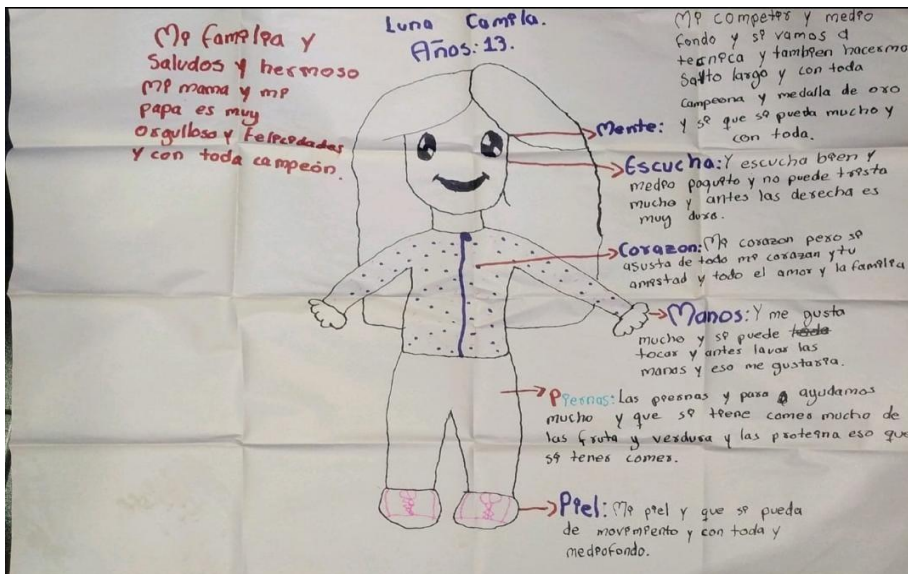 Luna Camila.
Años: 13.
Mi familia y
Saludos y hermoso
mi mama y mi
papa es muy
orgulloso y Felicidadas
y con toda campeón.
Mi competer y medio
fondo y si vamos a
tecnica y tambien hacermo
Salto largo y con toda
campeona y medalla de oro
Mente: y si que si pueda mucho y
con toda.
Escucha: Y escucha bien y
medio poquito y no puede trista
mucho y antes las derecha es
muy dura.
Corazon: Mi corazon pero si
asusta de todo mi corazan y tu
amistad y todo el amor y la familia
Manos: Y me gusta
mucho y si puede
tocar y antes lavar las
manas y eso me gustaria.
Piernas: Las piernas y para ayudamos
mucho y que si tiene comer mucho de
las fruta y verdura y las proteina eso que
si tener comer.
Piel: Mi piel y que si pueda
de movimiento y con toda y
mediofondo.